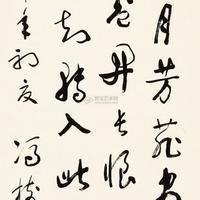 月芳菲尽
盛开长恨
知转入此
年初夏 冯